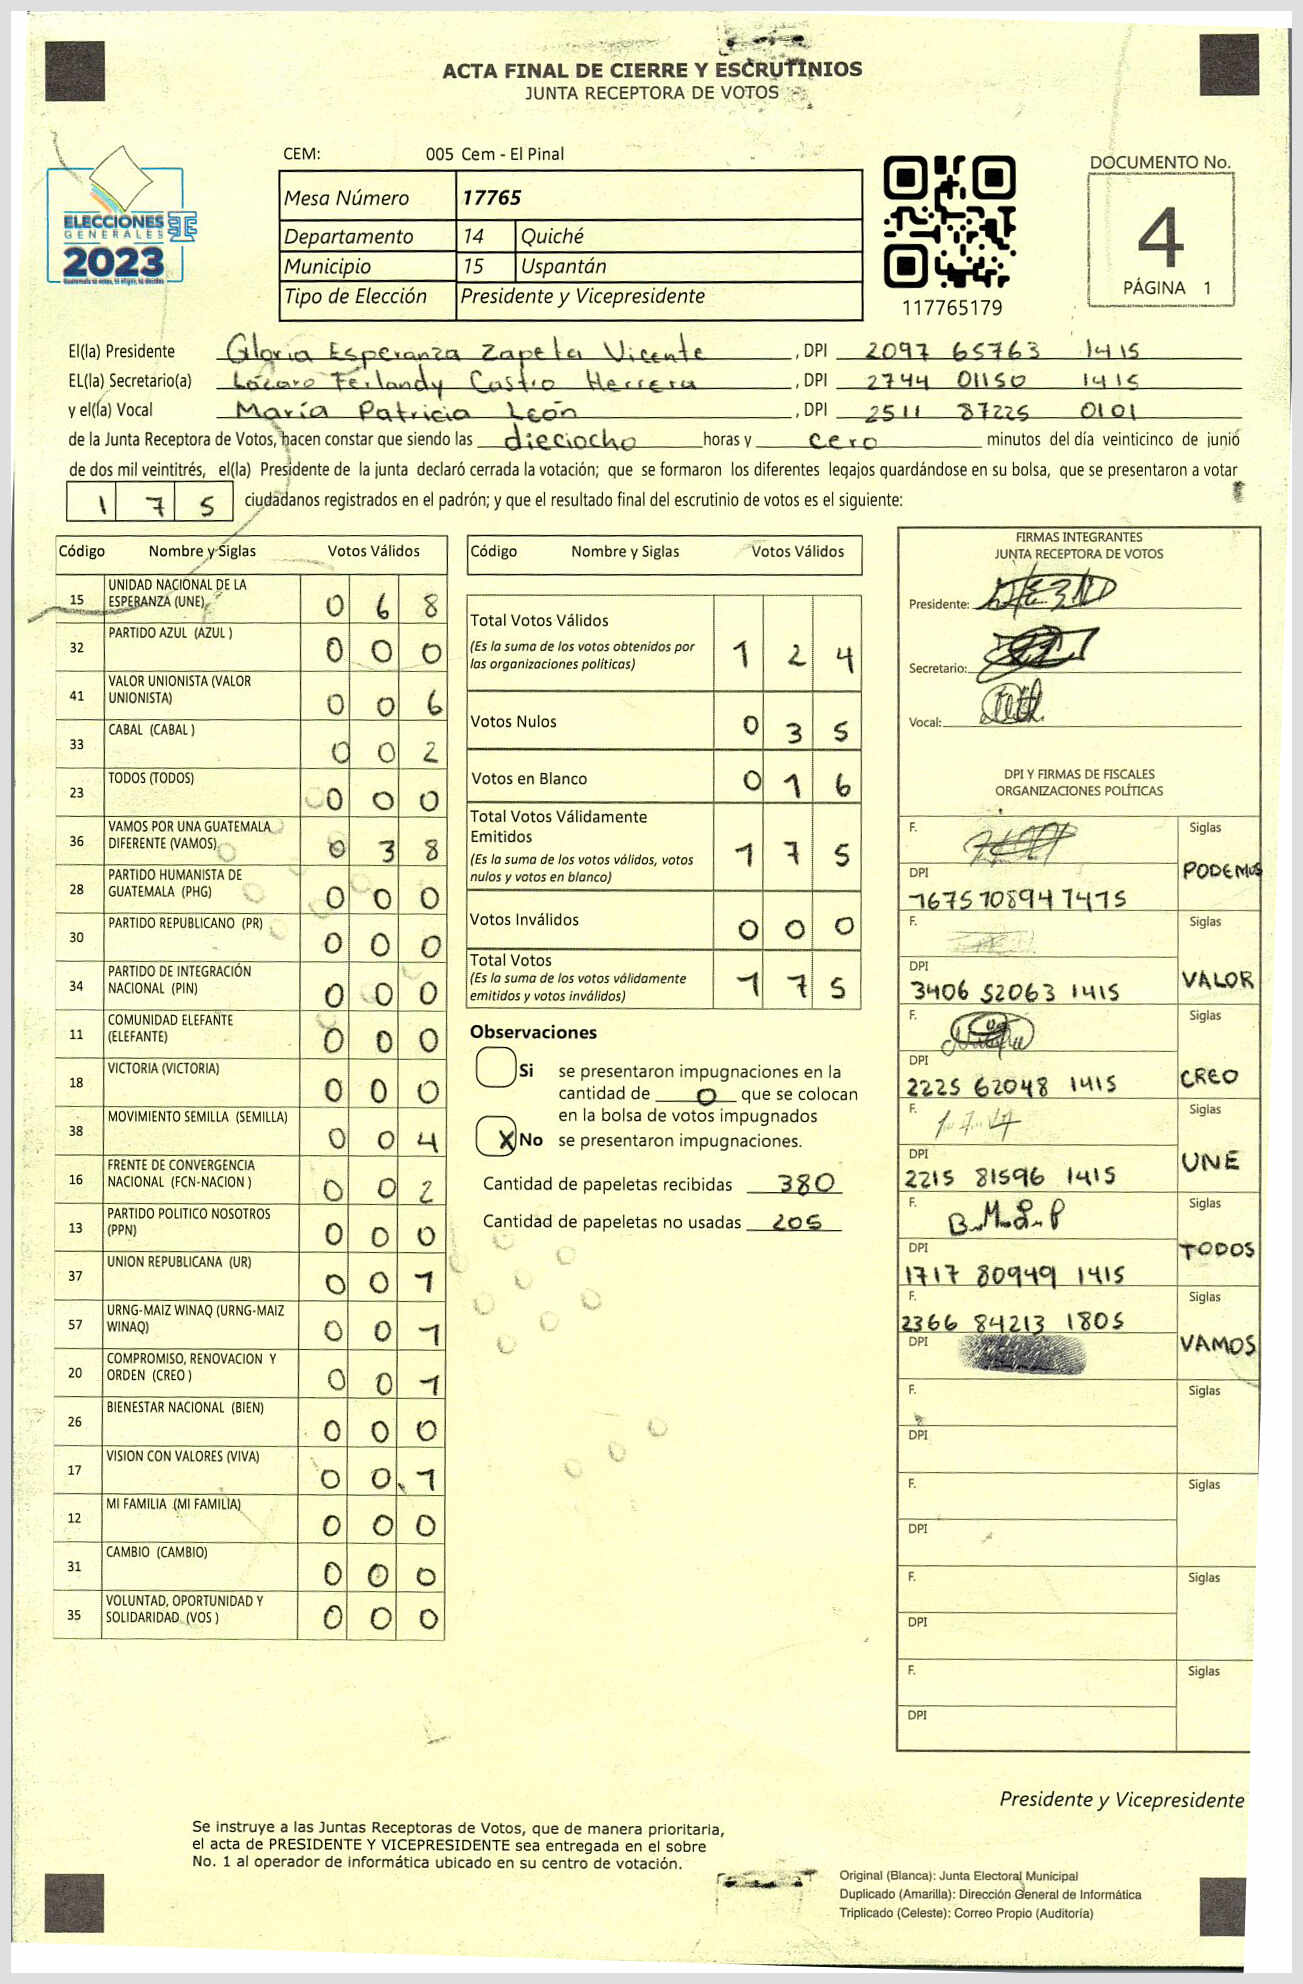 ACTA FINAL DE CIERRE Y ESCRUTINIOS
JUNTA RECEPTORA DE VOTOS
CEM: 005 Cem - El Pinal
DOCUMENTO No.
4
PÁGINA 1
ELECCIONES
GENERALES
2023
Mesa Número 17765
Departamento 14 Quiché
Municipio 15 Uspantán
Tipo de Elección Presidente y Vicepresidente
117765179
El(la) Presidente Gloria Esperanza Zapeta Vicente , DPI 2097 65763 1415
EL(la) Secretario(a) Lázaro Ferlandy Castro Herrera , DPI 2744 01150 1415
y el(la) Vocal María Patricia León , DPI 2511 87225 0101
de la Junta Receptora de Votos, hacen constar que siendo las dieciocho horas y cero minutos del día veinticinco de junio
de dos mil veintitrés, el(la) Presidente de la junta declaró cerrada la votación; que se formaron los diferentes legajos quardándose en su bolsa, que se presentaron a votar
1 7 5 ciudadanos registrados en el padrón; y que el resultado final del escrutinio de votos es el siguiente:
Código Nombre y Siglas Votos Válidos
15 UNIDAD NACIONAL DE LA
ESPERANZA (UNE) 0 6 8
32 PARTIDO AZUL (AZUL ) 0 0 0
41 VALOR UNIONISTA (VALOR
UNIONISTA) 0 0 6
33 CABAL (CABAL ) 0 0 2
23 TODOS (TODOS) 0 0 0
36 VAMOS POR UNA GUATEMALA
DIFERENTE (VAMOS) 0 3 8
28 PARTIDO HUMANISTA DE
GUATEMALA (PHG) 0 0 0
30 PARTIDO REPUBLICANO (PR) 0 0 0
34 PARTIDO DE INTEGRACIÓN
NACIONAL (PIN) 0 0 0
11 COMUNIDAD ELEFANTE
(ELEFANTE) 0 0 0
18 VICTORIA (VICTORIA) 0 0 0
38 MOVIMIENTO SEMILLA (SEMILLA) 0 0 4
16 FRENTE DE CONVERGENCIA
NACIONAL (FCN-NACION ) 0 0 2
13 PARTIDO POLITICO NOSOTROS
(PPN) 0 0 0
37 UNION REPUBLICANA (UR) 0 0 1
57 URNG-MAIZ WINAQ (URNG-MAIZ
WINAQ) 0 0 1
20 COMPROMISO, RENOVACION Y
ORDEN (CREO ) 0 0 1
26 BIENESTAR NACIONAL (BIEN) 0 0 0
17 VISION CON VALORES (VIVA) 0 0 1
12 MI FAMILIA (MI FAMILIA) 0 0 0
31 CAMBIO (CAMBIO) 0 0 0
35 VOLUNTAD, OPORTUNIDAD Y
SOLIDARIDAD (VOS ) 0 0 0
Código Nombre y Siglas Votos Válidos
Total Votos Válidos
(Es la suma de los votos obtenidos por
las organizaciones políticas) 1 2 4
Votos Nulos 0 3 5
Votos en Blanco 0 1 6
Total Votos Válidamente
Emitidos
(Es la suma de los votos válidos, votos
nulos y votos en blanco) 1 7 5
Votos Inválidos 0 0 0
Total Votos
(Es la suma de los votos válidamente
emitidos y votos inválidos) 1 7 5
Observaciones
Si se presentaron impugnaciones en la
cantidad de 0 que se colocan
en la bolsa de votos impugnados
X No se presentaron impugnaciones.
Cantidad de papeletas recibidas 380
Cantidad de papeletas no usadas 205
FIRMAS INTEGRANTES
JUNTA RECEPTORA DE VOTOS
Presidente:
Secretario:
Vocal:
DPI Y FIRMAS DE FISCALES
ORGANIZACIONES POLÍTICAS
F. Siglas
DPI PODEMOS
1675 10894 1415
F. Siglas
DPI VALOR
3406 52063 1415
F. Siglas
DPI CREO
2225 62048 1415
F. Siglas
DPI UNE
2215 81596 1415
F. B.M.L.P Siglas
DPI TODOS
1717 80949 1415
F. Siglas
2366 84213 1805
DPI VAMOS
F. Siglas
DPI
F. Siglas
DPI
F. Siglas
DPI
F. Siglas
DPI
Presidente y Vicepresidente
Se instruye a las Juntas Receptoras de Votos, que de manera prioritaria,
el acta de PRESIDENTE Y VICEPRESIDENTE sea entregada en el sobre
No. 1 al operador de informática ubicado en su centro de votación.
Original (Blanca): Junta Electoral Municipal
Duplicado (Amarilla): Dirección General de Informática
Triplicado (Celeste): Correo Propio (Auditoría)